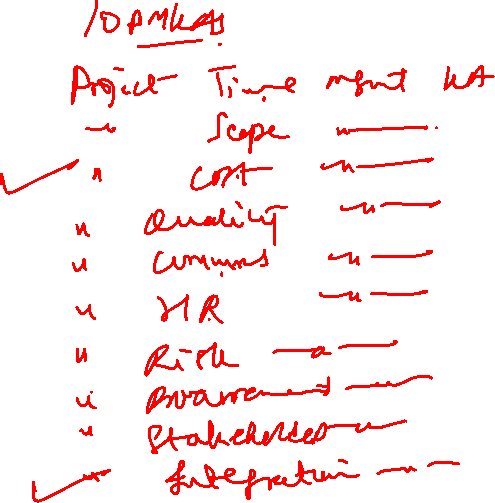 10 PMKAs
Project Time mgmt KA
" Scope "
" Cost "
" Quality "
" Comms "
" HR "
" Risk "
" Procurement "
" Stakeholder "
" Integration "